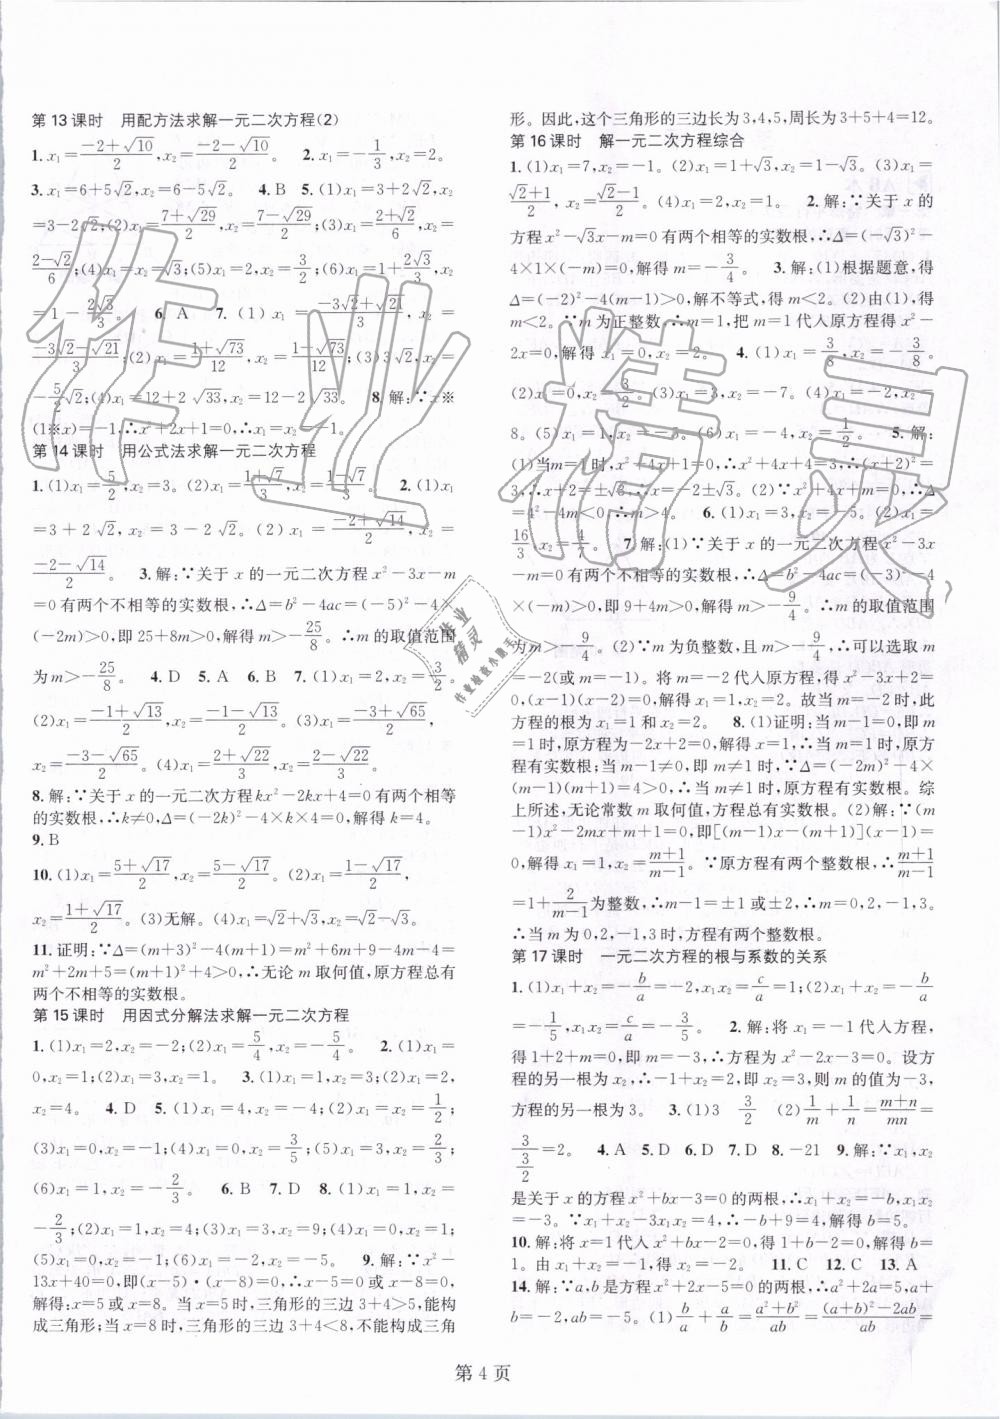 第13课时 用配方法求解一元二次方程(2)
1. x₁=(-2+√10)/2, x₂=(-2-√10)/2。 2. x₁=-1/3, x₂=2。
3. x₁=6+5√2, x₂=6-5√2。 4. B 5. (1)x₁=3+2√2, x₂
=3-2√2;(2)x₁=(7+√29)/2, x₂=(7-√29)/2;(3)x₁=(2+√2)/6, x₂=
(2-√2)/6;(4)x₁=x₂=√3;(5)x₁=2, x₂=3/2;(6)x₁=1+2√3/3, x₂
=1-2√3/3。 6. A 7. (1)x₁=(-3√2+√21)/3, x₂=
(-3√2-√21)/3;(2)x₁=(1+√73)/12, x₂=(1-√73)/12;
-5/2√2;(4)x₁=12+2√33, x₂=12-2√33。 8. 解:∵x※
(1※x)=-1,∴x²+2x+1=0,∴x₁=x₂=-1。
第14课时 用公式法求解一元二次方程
1. (1)x₁=5/2, x₂=3。(2)x₁=(1+√7)/3, x₂=(1-√7)/3。 2. (1)x₁
=3+2√2, x₂=3-2√2。(2)x₁=(-2+√14)/2, x₂=
(-2-√14)/2。 3. 解:∵关于x的一元二次方程x²-3x-m
=0有两个不相等的实数根,∴Δ=b²-4ac=(-5)²-4×
(-2m)>0,即25+8m>0,解得m>-25/8。∴m的取值范围
为m>-25/8。 4. D 5. A 6. B 7. (1)x₁=2, x₂=3/2。
(2)x₁=(-1+√13)/2, x₂=(-1-√13)/2。(3)x₁=(-3+√65)/2,
x₂=(-3-√65)/2。(4)x₁=(2+√22)/3, x₂=(2-√22)/3。
8. 解:∵关于x的一元二次方程kx²-2kx+4=0有两个相等
的实数根,∴k≠0,Δ=(-2k)²-4×k×4=0,解得k=4。
9. B
10. (1)x₁=(5+√17)/2, x₂=(5-√17)/2。(2)x₁=(1-√17)/2,
x₂=(1+√17)/2。(3)无解。(4)x₁=√2+√3, x₂=√2-√3。
11. 证明:∵Δ=(m+3)²-4(m+1)=m²+6m+9-4m-4=
m²+2m+5=(m+1)²+4>0,∴无论m取何值,原方程总有
两个不相等的实数根。
第15课时 用因式分解法求解一元二次方程
1. (1)x₁=2, x₂=-2;(2)x₁=5/4, x₂=-5/4。 2. (1)x₁=
0, x₂=1;(2)x₁=0, x₂=1。 3. (1)x₁=x₂=1;(2)x₁=2,
x₂=4。 4. D 5. (1)x₁=4, x₂=-4;(2)x₁=x₂=1/2;
(3)x₁=0, x₂=-1;(4)x₁=0, x₂=3/5;(5)x₁=0, x₂=2/3;
(6)x₁=1, x₂=-2/3。 6. B 7. D 8. (1)x₁=1, x₂=
-2/3;(2)x₁=1, x₂=4;(3)x₁=3, x₂=9;(4)x₁=0, x₂=1;
(5)x₁=0, x₂=-1;(6)x₁=-2, x₂=-5。 9. 解:∵x²-
13x+40=0,即(x-5)·(x-8)=0,∴x-5=0或x-8=0,
解得:x=5或x=8。当x=5时,三角形的三边3+4>5,能构
成三角形;当x=8时,三角形的三边3+4<8,不能构成三角
形。因此,这个三角形的三边长为3,4,5,周长为3+5+4=12。
第16课时 解一元二次方程综合
1. (1)x₁=7, x₂=-1。(2)x₁=1+√3, x₂=1-√3。(3)x₁=
(√2+1)/2, x₂=(√2-1)/2。(4)x₁=2, x₂=1。 2. 解:∵关于x的
方程x²-√3x-m=0有两个相等的实数根,∴Δ=(-√3)²-
4×1×(-m)=0,解得m=-3/4。 3. 解:(1)根据题意,得
Δ=(-2)²-4(m-1)>0,解不等式,得m<2。(2)由(1),得
m<2。∵m为正整数,∴m=1,把m=1代入原方程得x²-
2x=0,解得x₁=0, x₂=2。 4. (1)x₁=3/8, x₂=-3/8。
(2)x₁=0, x₂=3/2。(3)x₁=1, x₂=-7。(4)x₁=-2, x₂=
8。(5)x₁=-2, x₂=-5。(6)x₁=-4, x₂=1/2。 5. 解:
(1)当m=1时,x²+4x+1=0,∴x²+4x+4=3,∴(x+2)²=
3,∴x+2=±√3,∴x=-2±√3。(2)∵x²+4x+m=0,∴Δ
=4²-4m<0,∴m>4。 6. (1)x₁=3, x₂=-5。(2)x₁=
16/3, x₂=4/7。 7. 解:(1)∵关于x的一元二次方程x²-3x
-m=0有两个不相等的实数根,∴Δ=b²-4ac=(-3)²-4
×(-m)>0,即9+4m>0,解得m>-9/4,∴m的取值范围
为m>-9/4。(2)∵m为负整数,且m>-9/4,∴可以选取m
=-2(或m=-1)。将m=-2代入原方程,得x²-3x+2=
0,(x-1)(x-2)=0,解得x₁=1, x₂=2。故当m=-2时,此
方程的根为x₁=1和x₂=2。 8. (1)证明:当m-1=0,即m
=1时,原方程为-2x+2=0,解得x=1,∴当m=1时,原方
程有实数根;当m-1≠0,即m≠1时,∵Δ=(-2m)²-4×
(m-1)(m+1)=4>0,∴当m≠1时,原方程有实数根。综
上所述,无论常数m取何值,方程总有实数根。(2)解:∵(m
-1)x²-2mx+m+1=0,即[(m-1)x-(m+1)](x-1)=
0,解得x₁=1, x₂=(m+1)/(m-1)。∵原方程有两个整数根,∴(m+1)/(m-1)
=1+2/(m-1)为整数,∴m-1=±1或±2,∴m=0,2,-1,3。
∴当m为0,2,-1,3时,方程有两个整数根。
第17课时 一元二次方程的根与系数的关系
1. (1)x₁+x₂=-b/a=-2, x₁x₂=c/a=1;(2)x₁+x₂=-b/a=
-1/5, x₁x₂=c/a=-3/5。 2. 解:将x₁=-1代入方程,
得1+2+m=0,即m=-3,∴方程为x²-2x-3=0。设方
程的另一根为x₂,∴-1+x₂=2,即x₂=3,则m的值为-3,
方程的另一根为3。 3. (1)3 3/2 (2)1/m+1/n=(m+n)/mn=
3/(3/2)=2。 4. A 5. D 6. D 7. -2 8. -21 9. 解:∵x₁,x₂
是关于x的方程x²+bx-3=0的两根,∴x₁+x₂=-b,x₁x₂
=-3。∵x₁+x₂-3x₁x₂=4,∴-b+9=4,解得b=5。
10. 解:将x=1代入x²+bx-2=0,得1+b-2=0,解得b=
1。由x₁+x₂=-1,得x₂=-2。 11. C 12. C 13. A
14. 解:∵a,b是方程x²+2x-5=0的两根,∴a²+2a=5,a+
b=-2,ab=-5。(1)b/a+a/b=(a²+b²)/ab=((a+b)²-2ab)/ab=
第4页
作业精灵
作业精灵
作业检查小助手